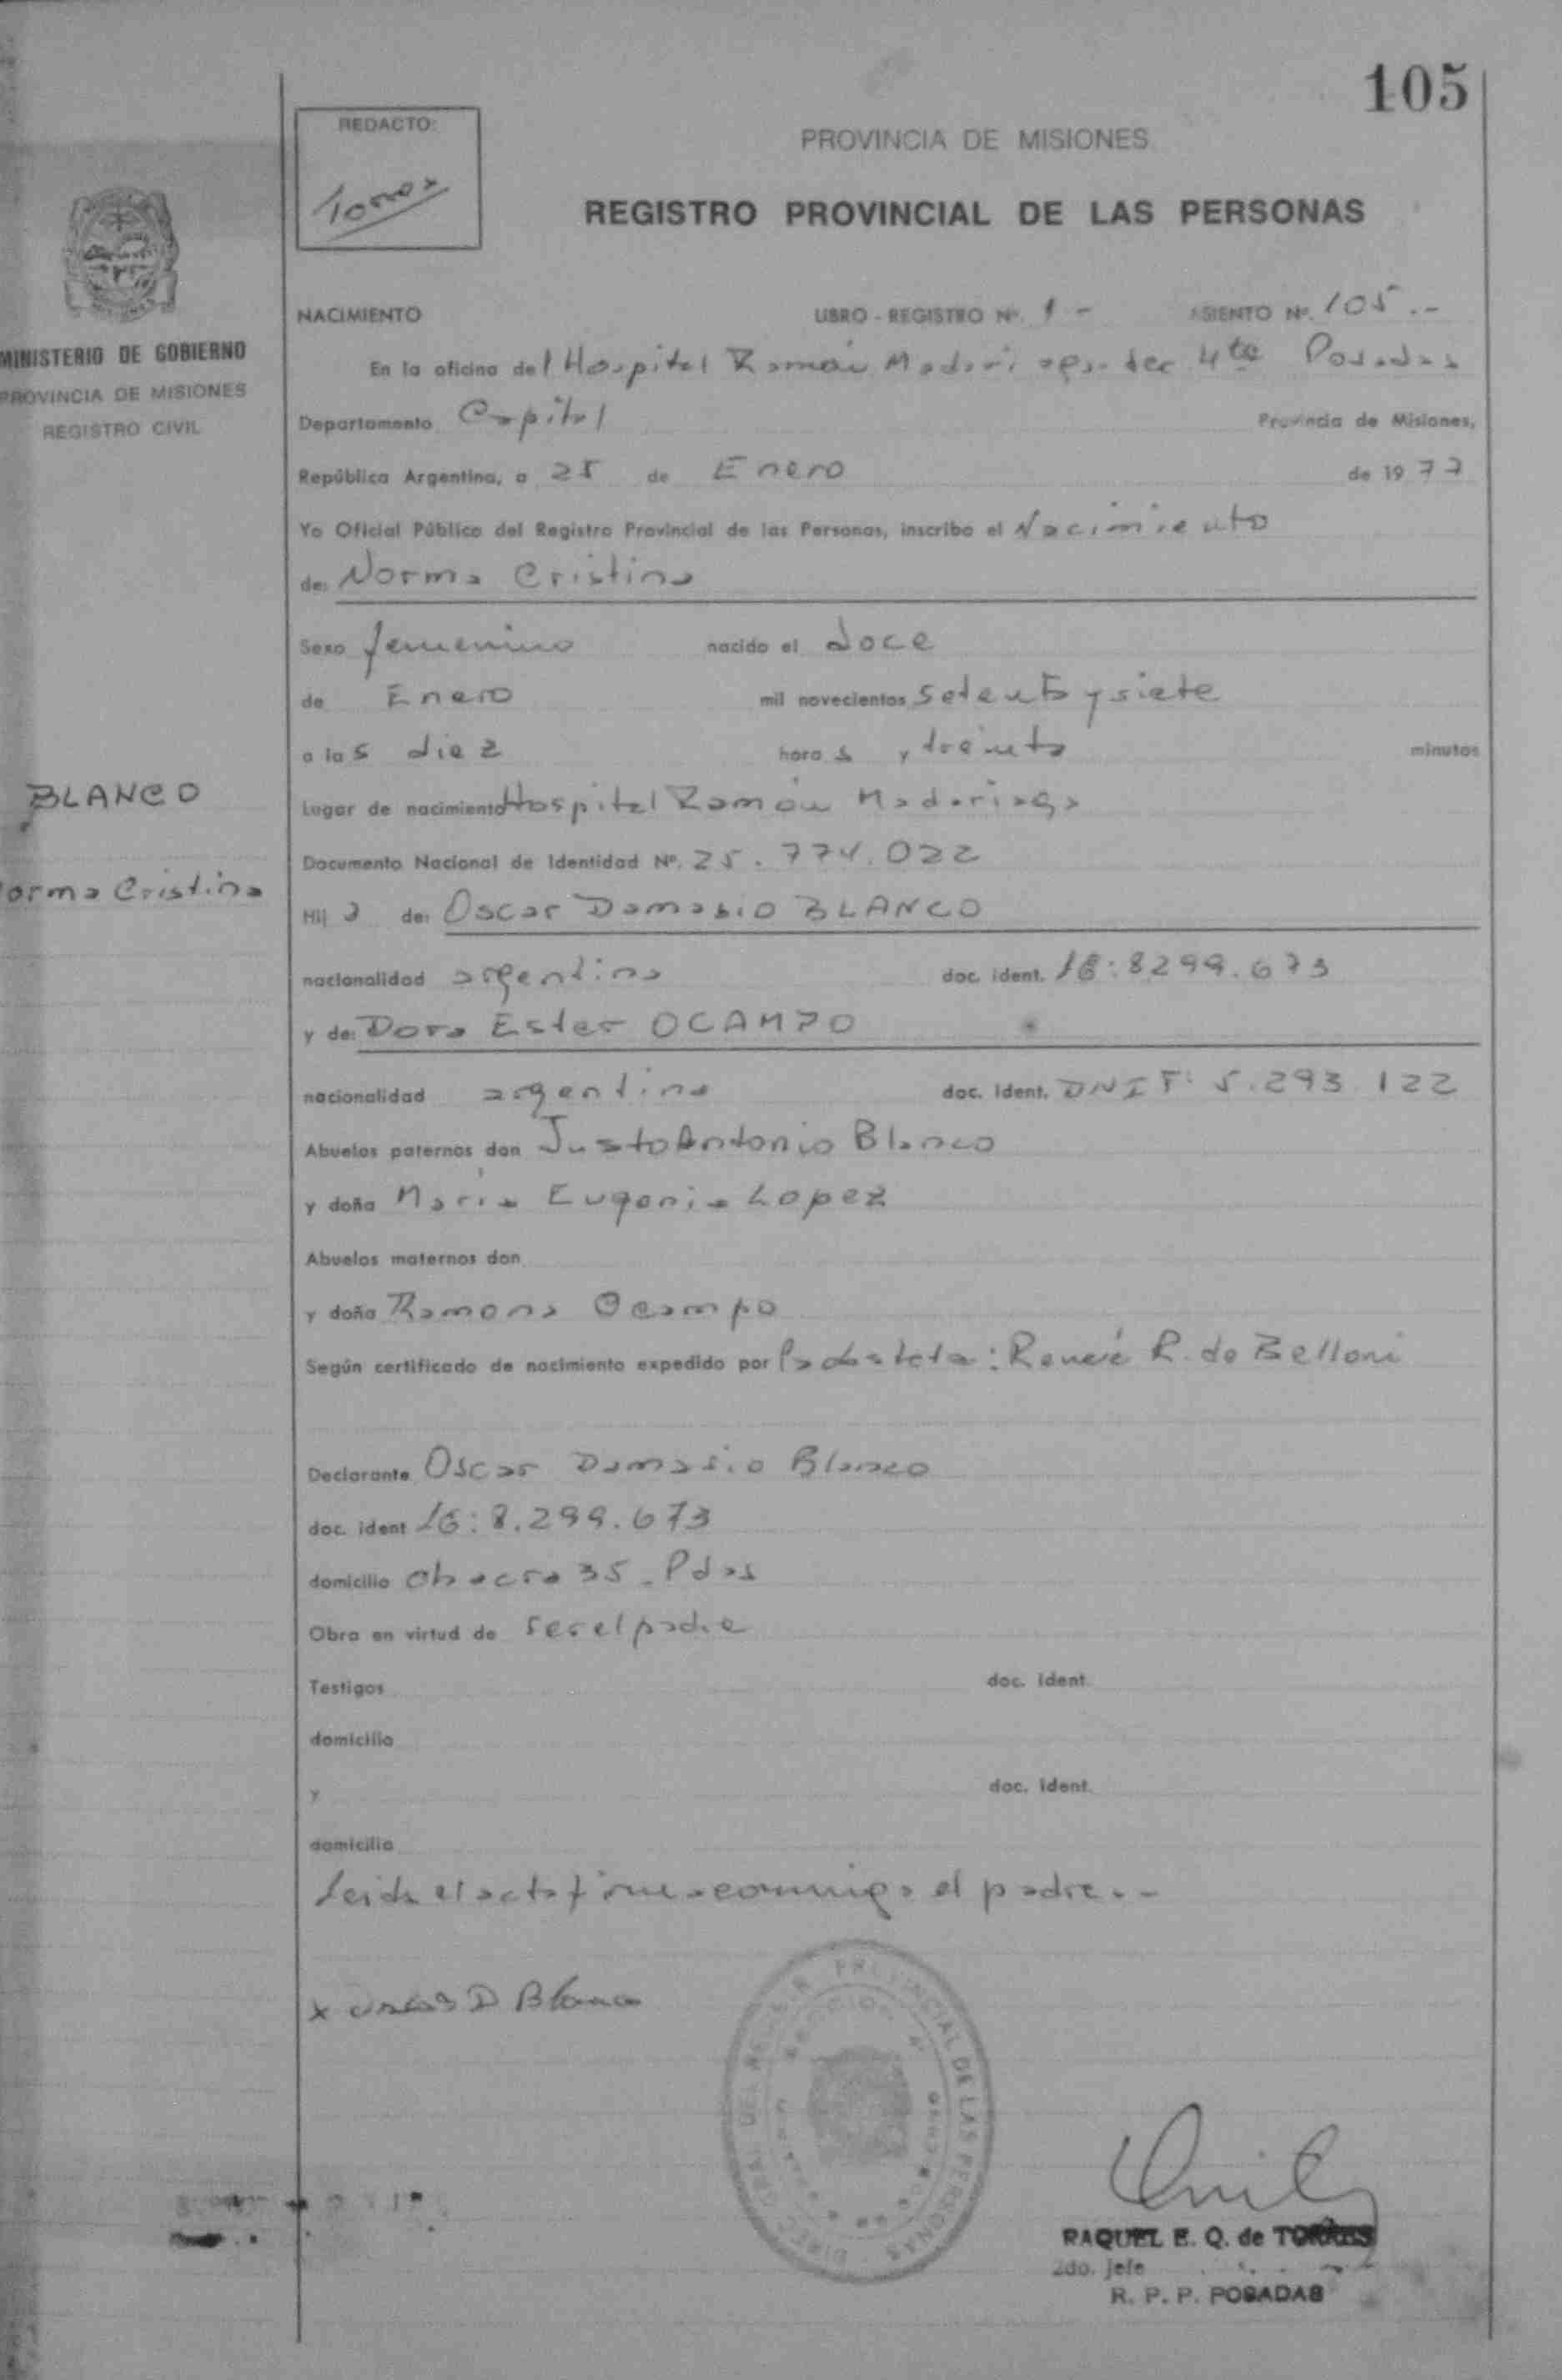 105
REDACTO:
Torres
PROVINCIA DE MISIONES
REGISTRO PROVINCIAL DE LAS PERSONAS
MINISTERIO DE GOBIERNO
PROVINCIA DE MISIONES
REGISTRO CIVIL
NACIMIENTO LIBRO - REGISTRO Nº. 1 - ASIENTO Nº. 105.-
En la oficina del Hospital Ramón Madariaga 4ta Posadas
Departamento Capital Provincia de Misiones,
República Argentina, a 25 de Enero de 1977
Yo Oficial Público del Registro Provincial de las Personas, inscribo el Nacimiento
de: Norma Cristina
Sexo femenino nacido el doce
de Enero mil novecientos setenta y siete
a las diez horas y treinta minutos
BLANCO
Lugar de nacimiento Hospital Ramón Madariaga
Documento Nacional de Identidad Nº. 25.774.022
orma Cristina
Hija de: Oscar Damasio BLANCO
nacionalidad argentina doc. ident. 8299.673
y de: Dora Ester OCAMPO
nacionalidad argentina doc. ident. DNI F: 5.293.122
Abuelos paternos don Justo Antonio Blanco
y doña María Eugenia Lopez
Abuelos maternos don
y doña Ramona Ocampo
Según certificado de nacimiento expedido por R. de Belloni
Declarante Oscar Damasio Blanco
doc. ident 8.299.673
domicilio chacra 35 - Pdas
Obra en virtud de ser el padre
Testigos doc. ident.
domicilio
y doc. ident.
domicilio
Leida el acta firma conmigo el padre.-
x D Blanco
DIREC. GRAL. DEL REG. PROVINCIAL DE LAS PERSONAS
RAQUEL E. Q. de TORRES
2do. Jefe
R. P. P. POSADAS